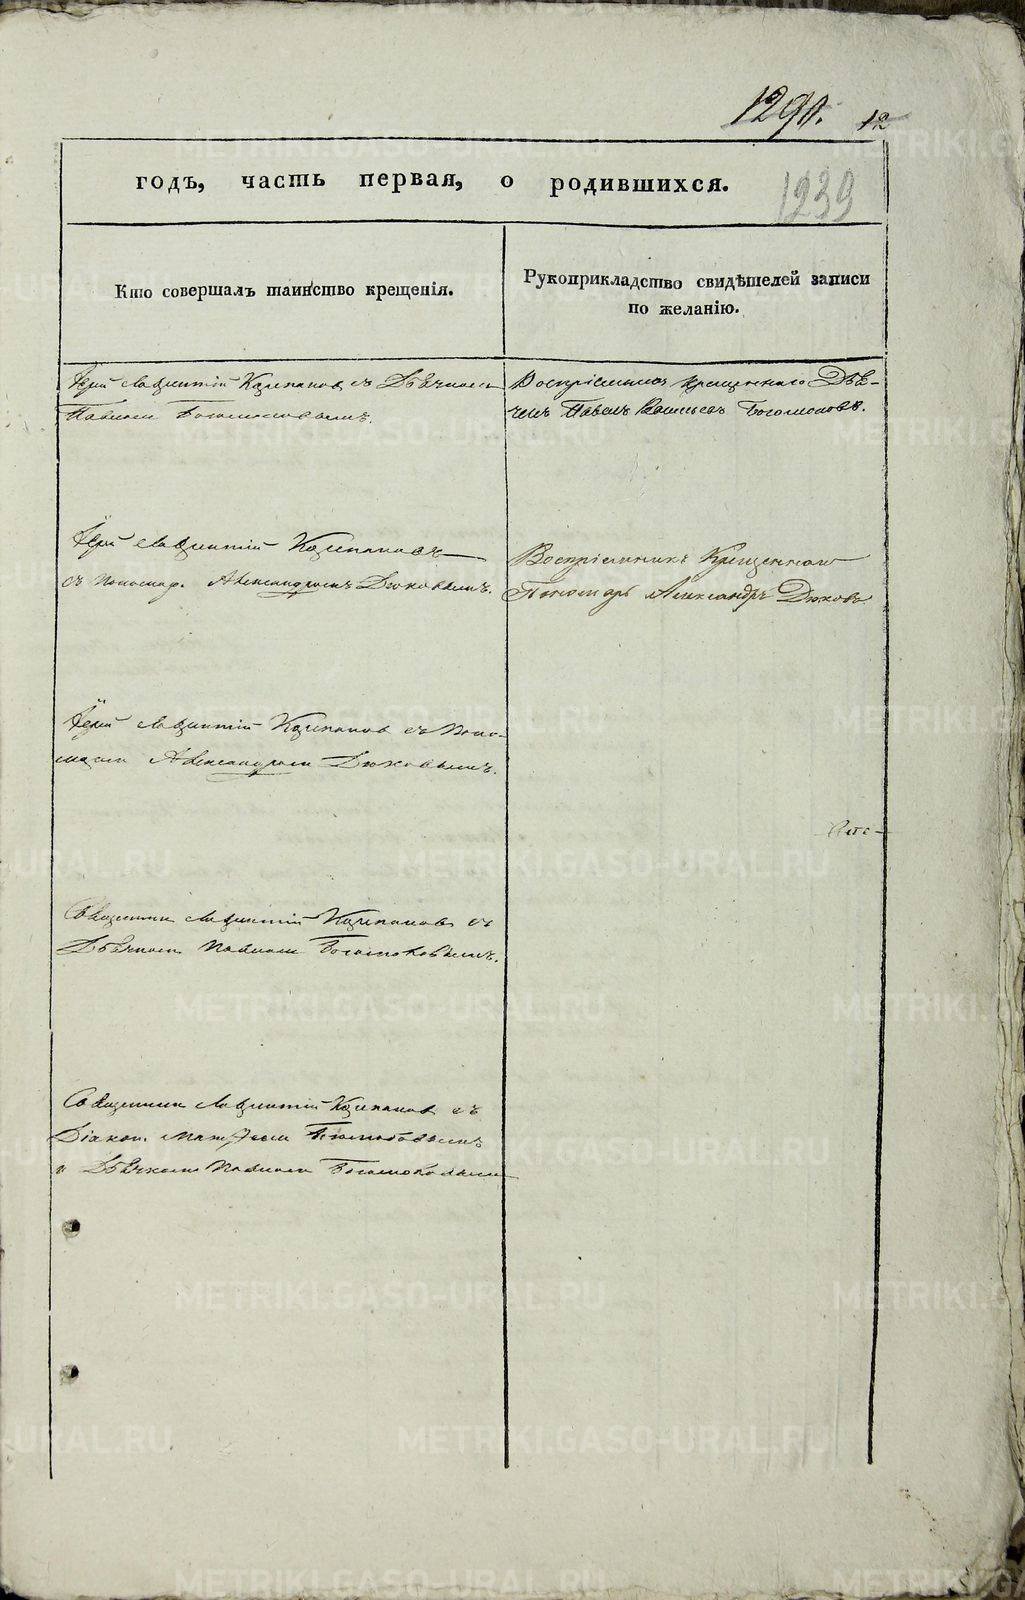 1290. 12
годъ, часть первая, о родившихся.
1239
Кто совершалъ таинство крещенія.
Рукоприкладство свидѣтелей записи
по желанію.
Іерей Лаврентій Калпаковъ съ Дьячкомъ
Павломъ Богомоловымъ.
Воспріемникъ крещеннаго Дья-
чекъ Павелъ Васильевъ Богомоловъ.
Іерей Лаврентій Калпаковъ
съ пономар. Александромъ Дюковымъ.
Воспріемникъ Крещеннаго
Пономарь Александръ Дюковъ
Іерей Лаврентій Калпаковъ съ Поно-
маремъ Александромъ Дюковымъ.
Священникъ Лаврентій Калпаковъ съ
Дьячкомъ Павломъ Богомоловымъ.
Священникъ Лаврентій Калпаковъ съ
Діакон.
и Дьячкомъ Павломъ Богомоловымъ
METRIKI.GASO-URAL.RU